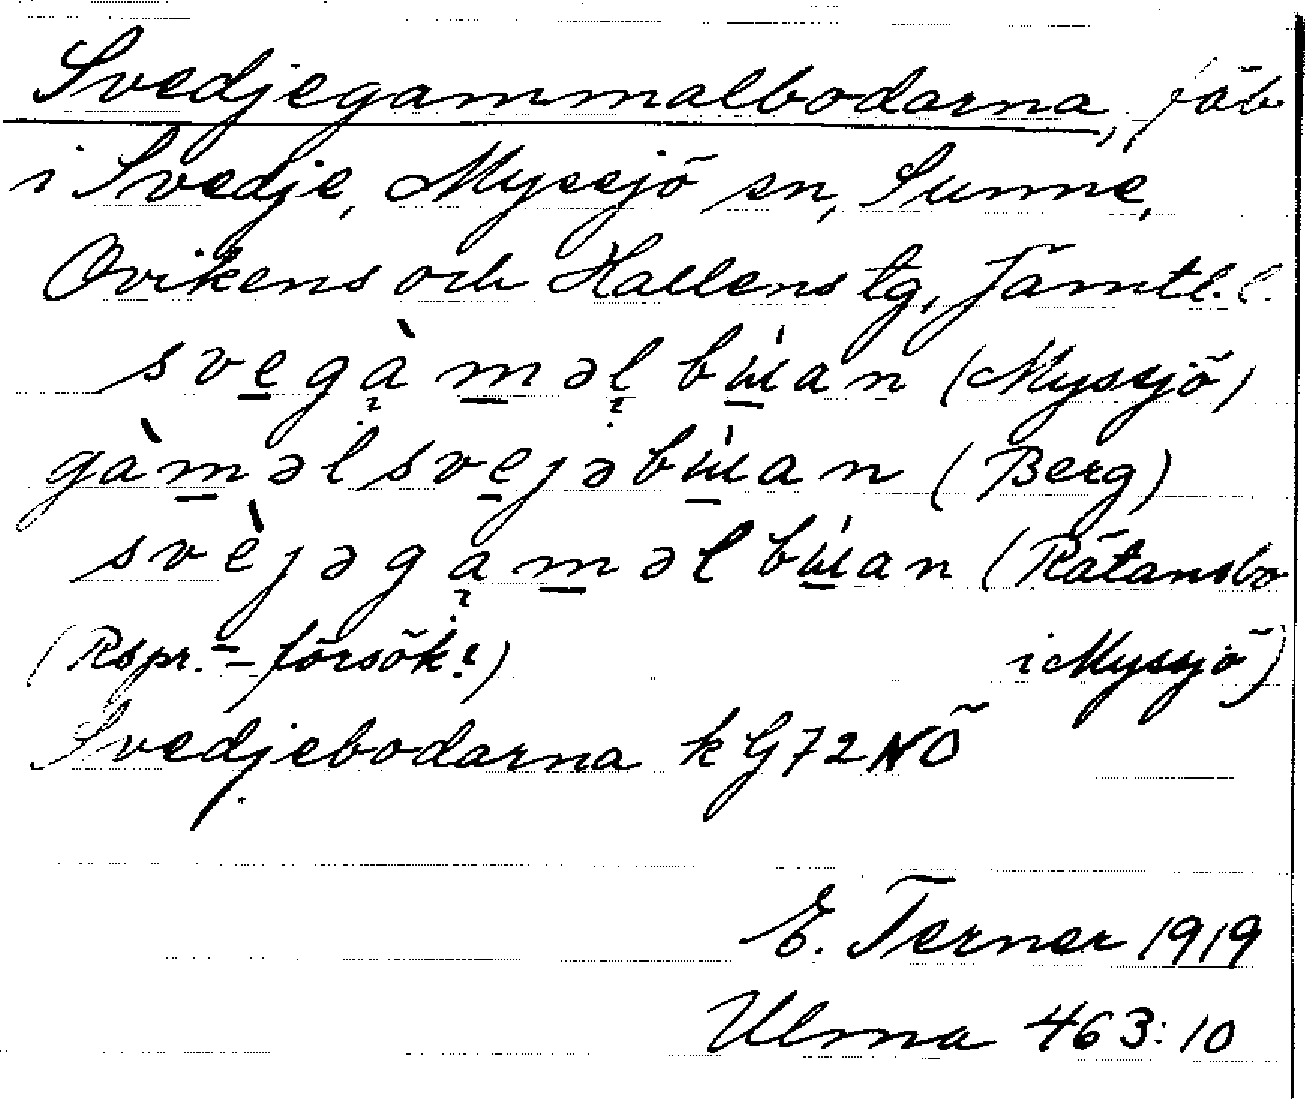 Svedjegammalbodarna, fäb
i Svedje, Myssjö sn, Sunne,
Ovikens och Hallens tg, Jämtl. l.
svegàməl bɯ́an (Myssjö)
gàməlsvejəbɯ́an (Berg)
svèjəgaməlbɯ́an (Rätansbo
(Rspr.-försök!) i Myssjö)
Svedjebodarna k G72NÖ
E. Terner 1919
Ulma 463:10